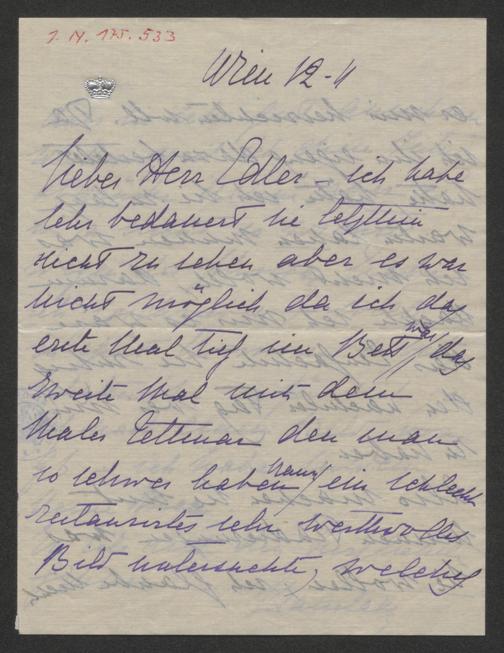 I. N. 175.533
Wien 12-4
Lieber Herr Edler – ich habe
sehr bedauert sie letzthin
nicht zu sehen aber es war
nicht möglich da ich das
erste Mal tief im Bett war / das
zweite Mal mit dem
Maler den man
so schwer haben kann / ein schlecht
restaurirtes sehr werthvolles
Bild untersuchte, welches